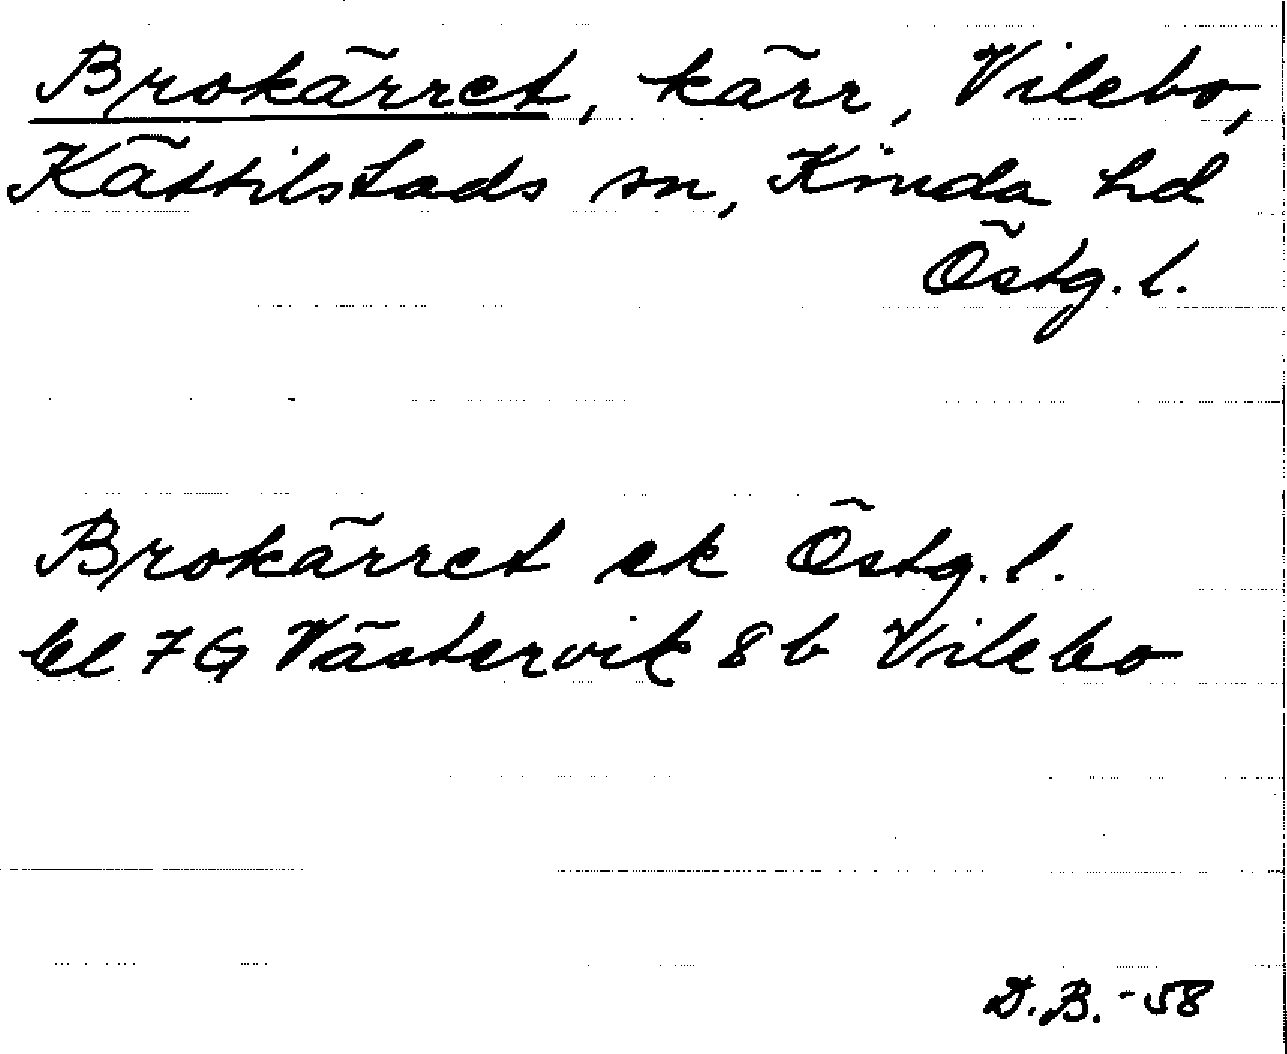 Brokärret, kärr, Vilebo,
Kättilstads sn, Kinda hd
Östg. l.
Brokärret ek Östg. l.
bl 7G Västervik 8b Vilebo
D.B. -58